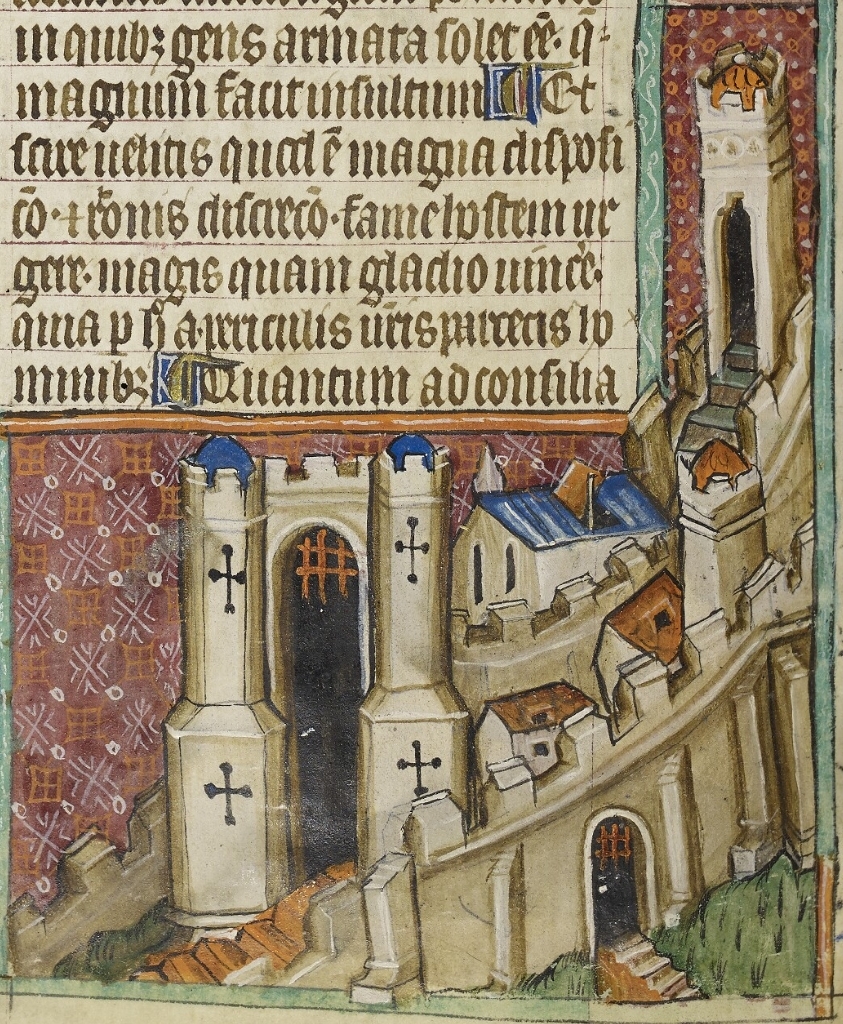 in quibꝫ gens armata solet eē. q̄
magnum facit insultum Et
scire uelitis quod ē magna disposi
cō. ⁊ rōnis discrecō. fame hostem ur
gere. magis quam gladio uincͤe.
quia p h a periculis uris parcetis ho
minibꝫ Quantum ad consilia